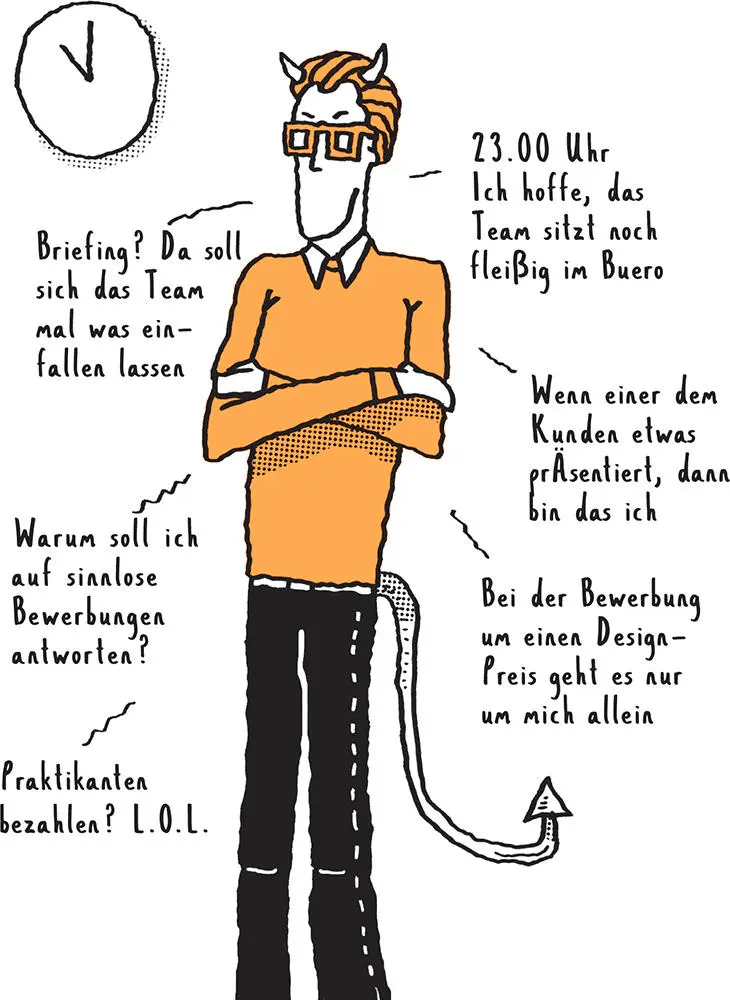 23.00 Uhr
Ich hoffe, das
Team sitzt noch
fleißig im Buero
Briefing? Da soll
sich das Team
mal was ein-
fallen lassen
Wenn einer dem
Kunden etwas
prÄsentiert, dann
bin das ich
Warum soll ich
auf sinnlose
Bewerbungen
antworten?
Bei der Bewerbung
um einen Design-
Preis geht es nur
um mich allein
Praktikanten
bezahlen? L.O.L.